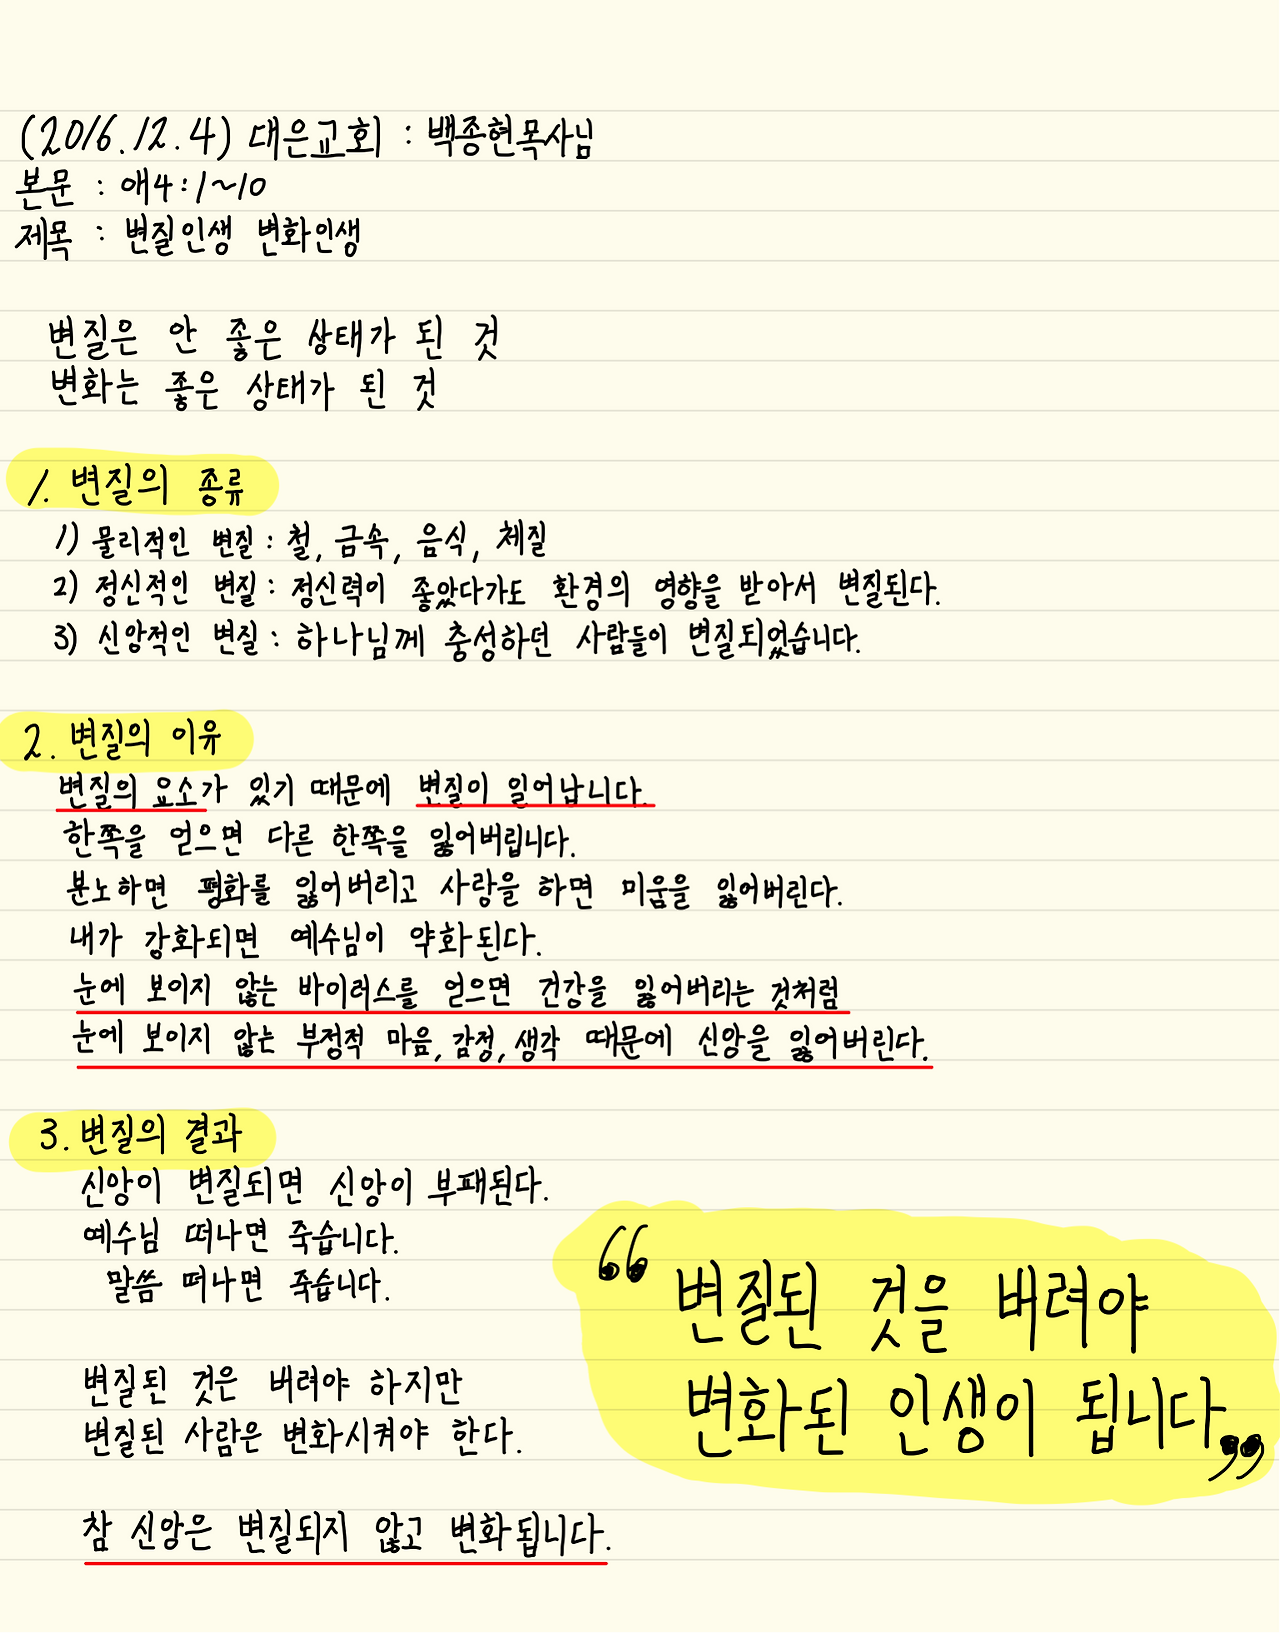 (2016.12.4) 대은교회 : 백종현목사님
본문 : 애4:1~10
제목 : 변질인생 변화인생
변질은 안 좋은 상태가 된 것
변화는 좋은 상태가 된 것
1. 변질의 종류
1) 물리적인 변질 : 철, 금속, 음식, 체질
2) 정신적인 변질 : 정신력이 좋았다가도 환경의 영향을 받아서 변질된다.
3) 신앙적인 변질 : 하나님께 충성하던 사람들이 변질되었습니다.
2. 변질의 이유
변질의 요소가 있기 때문에 변질이 일어납니다.
한쪽을 얻으면 다른 한쪽을 잃어버립니다.
분노하면 평화를 잃어버리고 사랑을 하면 미움을 잃어버린다.
내가 강화되면 예수님이 약화된다.
눈에 보이지 않는 바이러스를 얻으면 건강을 잃어버리는 것처럼
눈에 보이지 않는 부정적 마음, 감정, 생각 때문에 신앙을 잃어버린다.
3. 변질의 결과
신앙이 변질되면 신앙이 부패된다.
예수님 떠나면 죽습니다.
말씀 떠나면 죽습니다.
변질된 것은 버려야 하지만
변질된 사람은 변화시켜야 한다.
참 신앙은 변질되지 않고 변화됩니다.
“변질된 것을 버려야
변화된 인생이 됩니다”